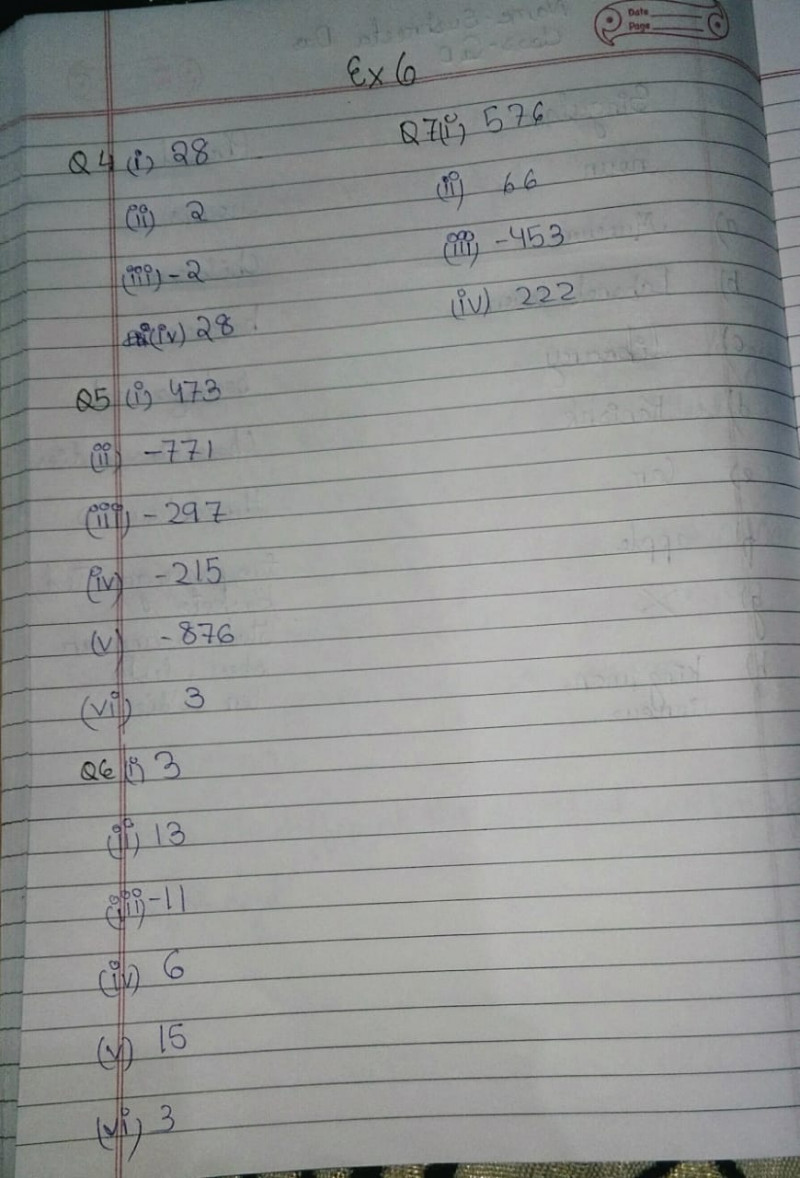 Date
Page
Ex 6
Q4 (i) 28
(ii) 2
(iii) -2
(iv) 28
Q5 (i) 473
(ii) -771
(iii) -297
(iv) -215
(v) -876
(vi) 3
Q6 (i) 3
(ii) 13
(iii) -11
(iv) 6
(v) 15
(vi) 3
Q7(i) 576
(ii) 66
(iii) -453
(iv) 222